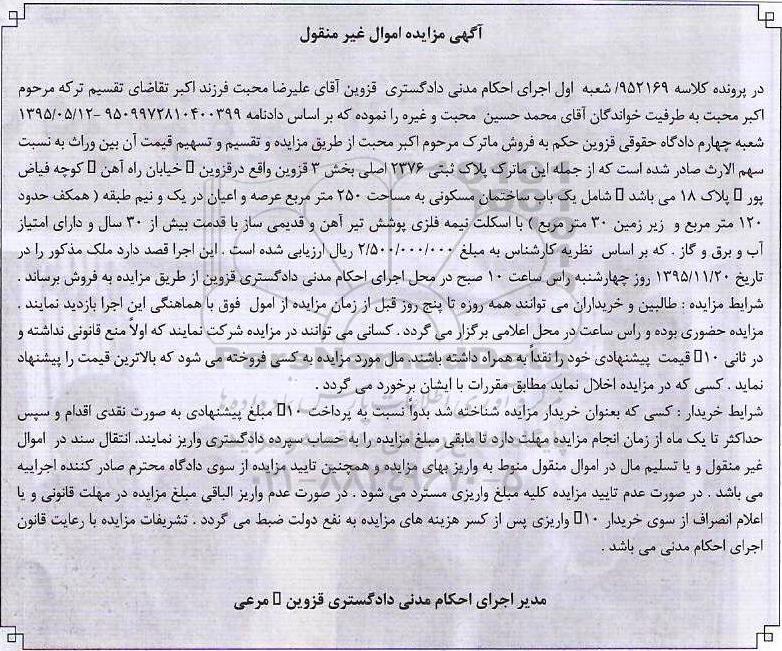 آگهی مزایده اموال غیر منقول
در پرونده کلاسه ۹۵۲۱۶۹/ شعبه اول اجرای احکام مدنی دادگستری قزوین آقای علیرضا محبت فرزند اکبر تقاضای تقسیم ترکه مرحوم
اکبر محبت به طرفیت خواندگان آقای محمد حسین محبت و غیره را نموده که بر اساس دادنامه ۹۵۰۹۹۷۲۸۱۰۴۰۰۳۹۹ -۱۳۹۵/۰۵/۱۲
شعبه چهارم دادگاه حقوقی قزوین حکم به فروش ماترک مرحوم اکبر محبت از طریق مزایده و تقسیم و تسهیم قیمت آن بین وراث به نسبت
سهم الارث صادر شده است که از جمله این ماترک پلاک ثبتی ۲۳۷۶ اصلی بخش ۳ قزوین واقع درقزوین ▯ خیابان راه آهن ▯ کوچه فیاض
پور ▯ پلاک ۱۸ می باشد ▯ شامل یک باب ساختمان مسکونی به مساحت ۲۵۰ متر مربع عرصه و اعیان در یک و نیم طبقه ( همکف حدود
۱۲۰ متر مربع و زیر زمین ۳۰ متر مربع ) با اسکلت نیمه فلزی پوشش تیر آهن و قدیمی ساز با قدمت بیش از ۳۰ سال و دارای امتیاز
آب و برق و گاز . که بر اساس نظریه کارشناس به مبلغ ۲/۵۰۰/۰۰۰/۰۰۰ ریال ارزیابی شده است . این اجرا قصد دارد ملک مذکور را در
تاریخ ۱۳۹۵/۱۱/۲۰ روز چهارشنبه راس ساعت ۱۰ صبح در محل اجرای احکام مدنی دادگستری قزوین از طریق مزایده به فروش برساند .
شرایط مزایده : طالبین و خریداران می توانند همه روزه تا پنج روز قبل از زمان مزایده از امول فوق با هماهنگی این اجرا بازدید نمایند .
مزایده حضوری بوده و راس ساعت در محل اعلامی برگزار می گردد . کسانی می توانند در مزایده شرکت نمایند که اولاً منع قانونی نداشته و
در ثانی ۱۰▯ قیمت پیشنهادی خود را نقداً به همراه داشته باشند. مال مورد مزایده به کسی فروخته می شود که بالاترین قیمت را پیشنهاد
نماید . کسی که در مزایده اخلال نماید مطابق مقررات با ایشان برخورد می گردد .
شرایط خریدار : کسی که بعنوان خریدار مزایده شناخته شد بدواً نسبت به پرداخت ۱۰▯ مبلغ پیشنهادی به صورت نقدی اقدام و سپس
حداکثر تا یک ماه از زمان انجام مزایده مهلت دارد تا مابقی مبلغ مزایده را به حساب سپرده دادگستری واریز نمایند. انتقال سند در اموال
غیر منقول و یا تسلیم مال در اموال منقول منوط به واریز بهای مزایده و همچنین تایید مزایده از سوی دادگاه محترم صادر کننده اجراییه
می باشد . در صورت عدم تایید مزایده کلیه مبلغ واریزی مسترد می شود . در صورت عدم واریز الباقی مبلغ مزایده در مهلت قانونی و یا
اعلام انصراف از سوی خریدار ۱۰▯ واریزی پس از کسر هزینه های مزایده به نفع دولت ضبط می گردد . تشریفات مزایده با رعایت قانون
اجرای احکام مدنی می باشد .
مدیر اجرای احکام مدنی دادگستری قزوین ▯ مرعی